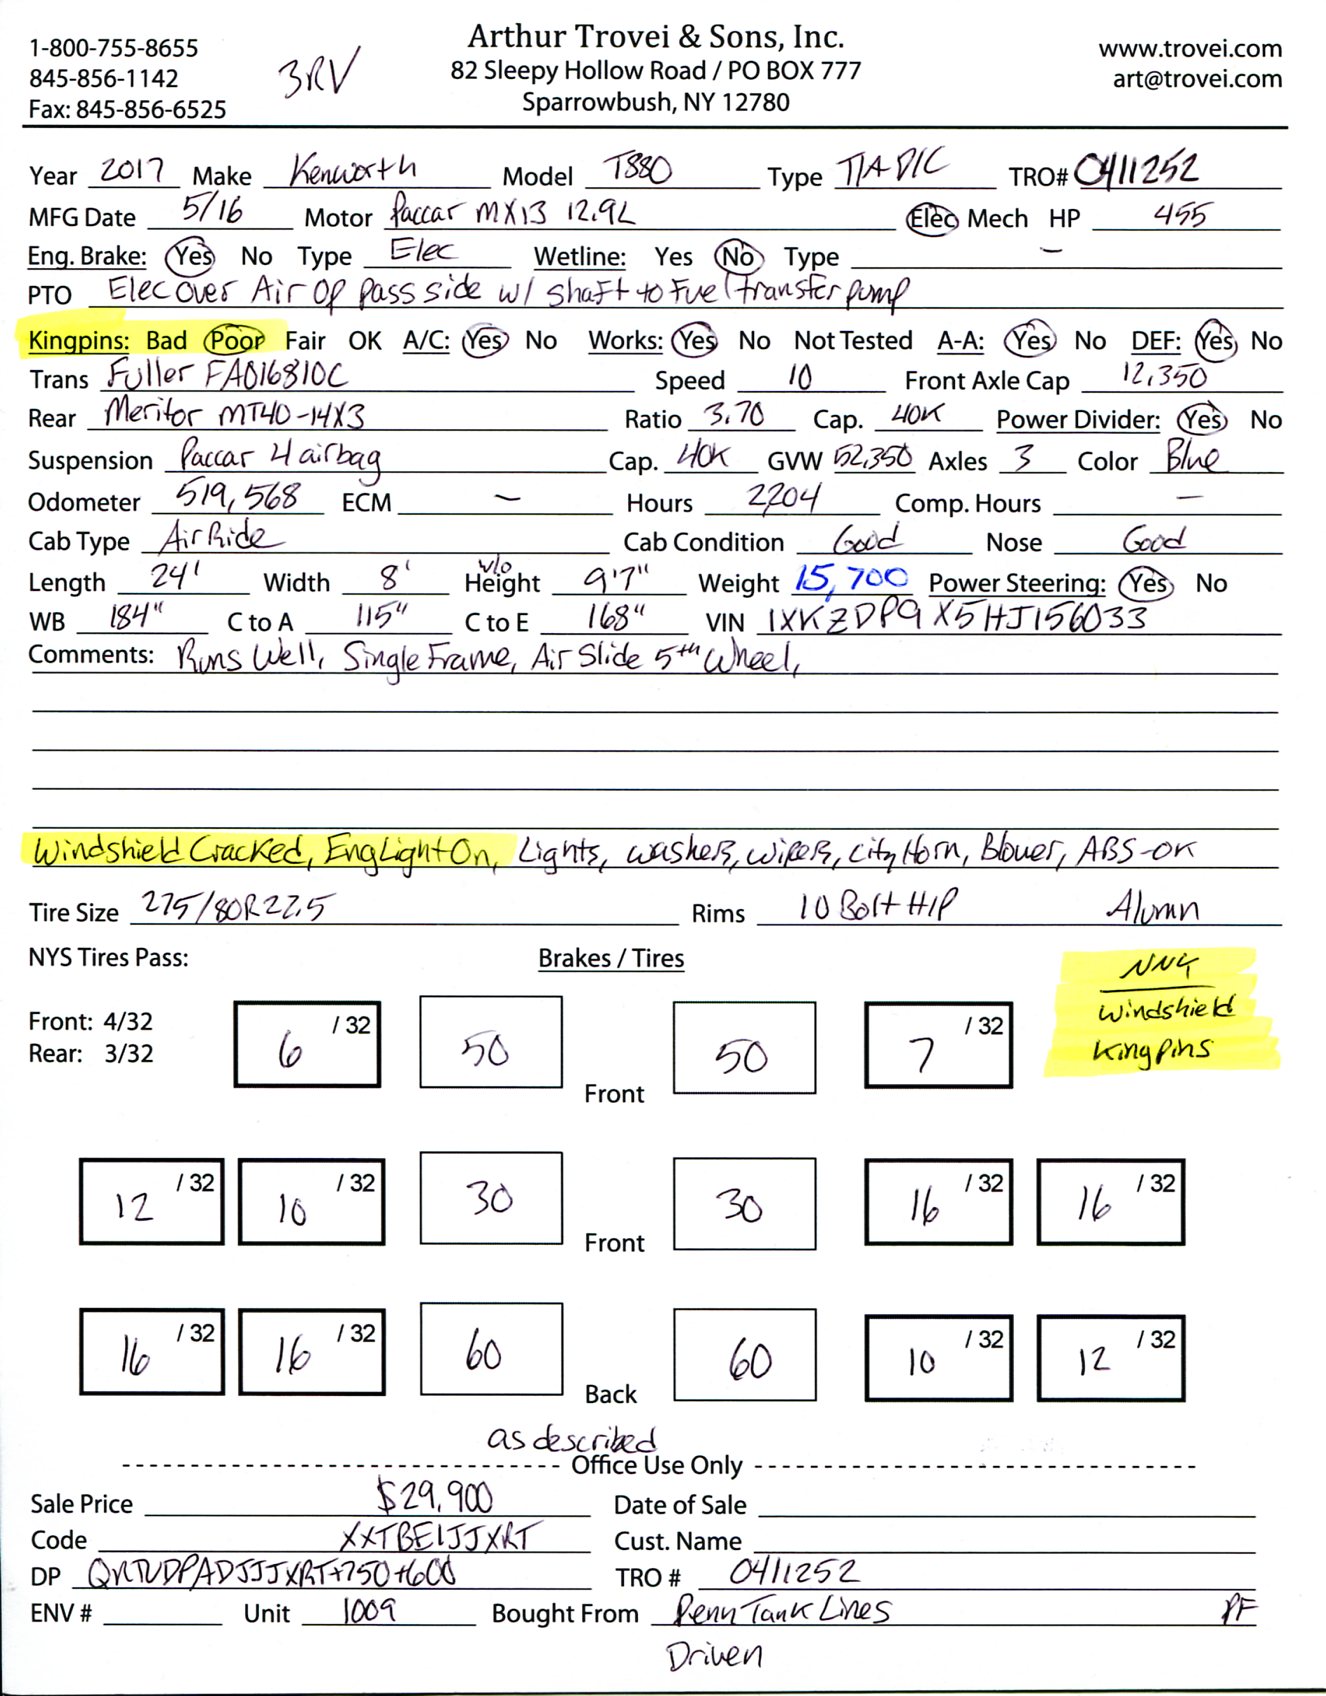 Arthur Trovei & Sons, Inc.
1-800-755-8655 www.trovei.com
845-856-1142 3RV 82 Sleepy Hollow Road / PO BOX 777 art@trovei.com
Fax: 845-856-6525 Sparrowbush, NY 12780
Year 2017 Make Kenworth Model T880 Type T/A D/C TRO# 0411252
MFG Date 5/16 Motor Paccar MX13 12.9L Elec Mech HP 455
Eng. Brake: Yes No Type Elec Wetline: Yes No Type —
PTO Elec over Air Op pass side w/ shaft to Fuel transfer pump
Kingpins: Bad Poor Fair OK A/C: Yes No Works: Yes No Not Tested A-A: Yes No DEF: Yes No
Trans Fuller FAO16810C Speed 10 Front Axle Cap 12,350
Rear Meritor MT40-14X3 Ratio 3.70 Cap. 40K Power Divider: Yes No
Suspension Paccar 4 airbag Cap. 40K GVW 52,350 Axles 3 Color Blue
Odometer 519,568 ECM — Hours 2204 Comp. Hours —
Cab Type Air Ride Cab Condition Good Nose Good
Length 24' Width 8' v/o Height 9'7" Weight 15,700 Power Steering: Yes No
WB 184" C to A 115" C to E 168" VIN 1XKZDP9X5HJ156033
Comments: Runs Well, Single Frame, Air Slide 5th Wheel,
Windshield Cracked, Eng Light On, Lights, washers, wipers, city Horn, Blower, ABS-OK
Tire Size 275/80R22.5 Rims 10 Bolt H/P Alumn
NYS Tires Pass: Brakes / Tires
NNY
Windshield
Kingpins
Front: 4/32
Rear: 3/32
6 /32 50 Front 50 7 /32
12 /32 10 /32 30 Front 30 16 /32 16 /32
16 /32 16 /32 60 Back 60 10 /32 12 /32
as described
Office Use Only
Sale Price $29,900 Date of Sale
Code XXTBEIJJXRT Cust. Name
DP +750+600 TRO # 0411252
ENV # Unit 1009 Bought From Penn Tank Lines PF
Driven